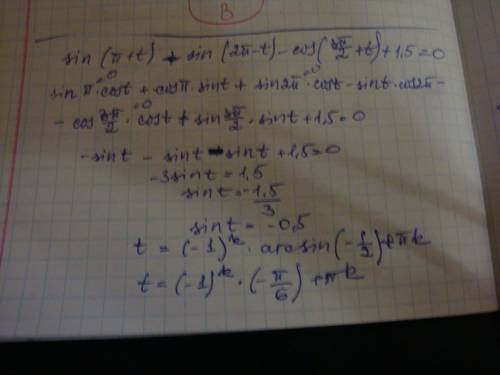 B
sin (π+t) + sin (2π-t) - cos(3π/2+t)+1,5=0
sin π·cost + cosπ·sint + sin2π·cost - sint·cos2π -
=0 =0
- cos 3π/2 · cost + sin 3π/2 · sint + 1,5=0
=0
-sint - sint - sint + 1,5=0
-3sint = 1,5
sint = -1,5/3
sint = -0,5
t = (-1)^k · arcsin(-1/2)+πk
t = (-1)^k · (-π/6) + πk